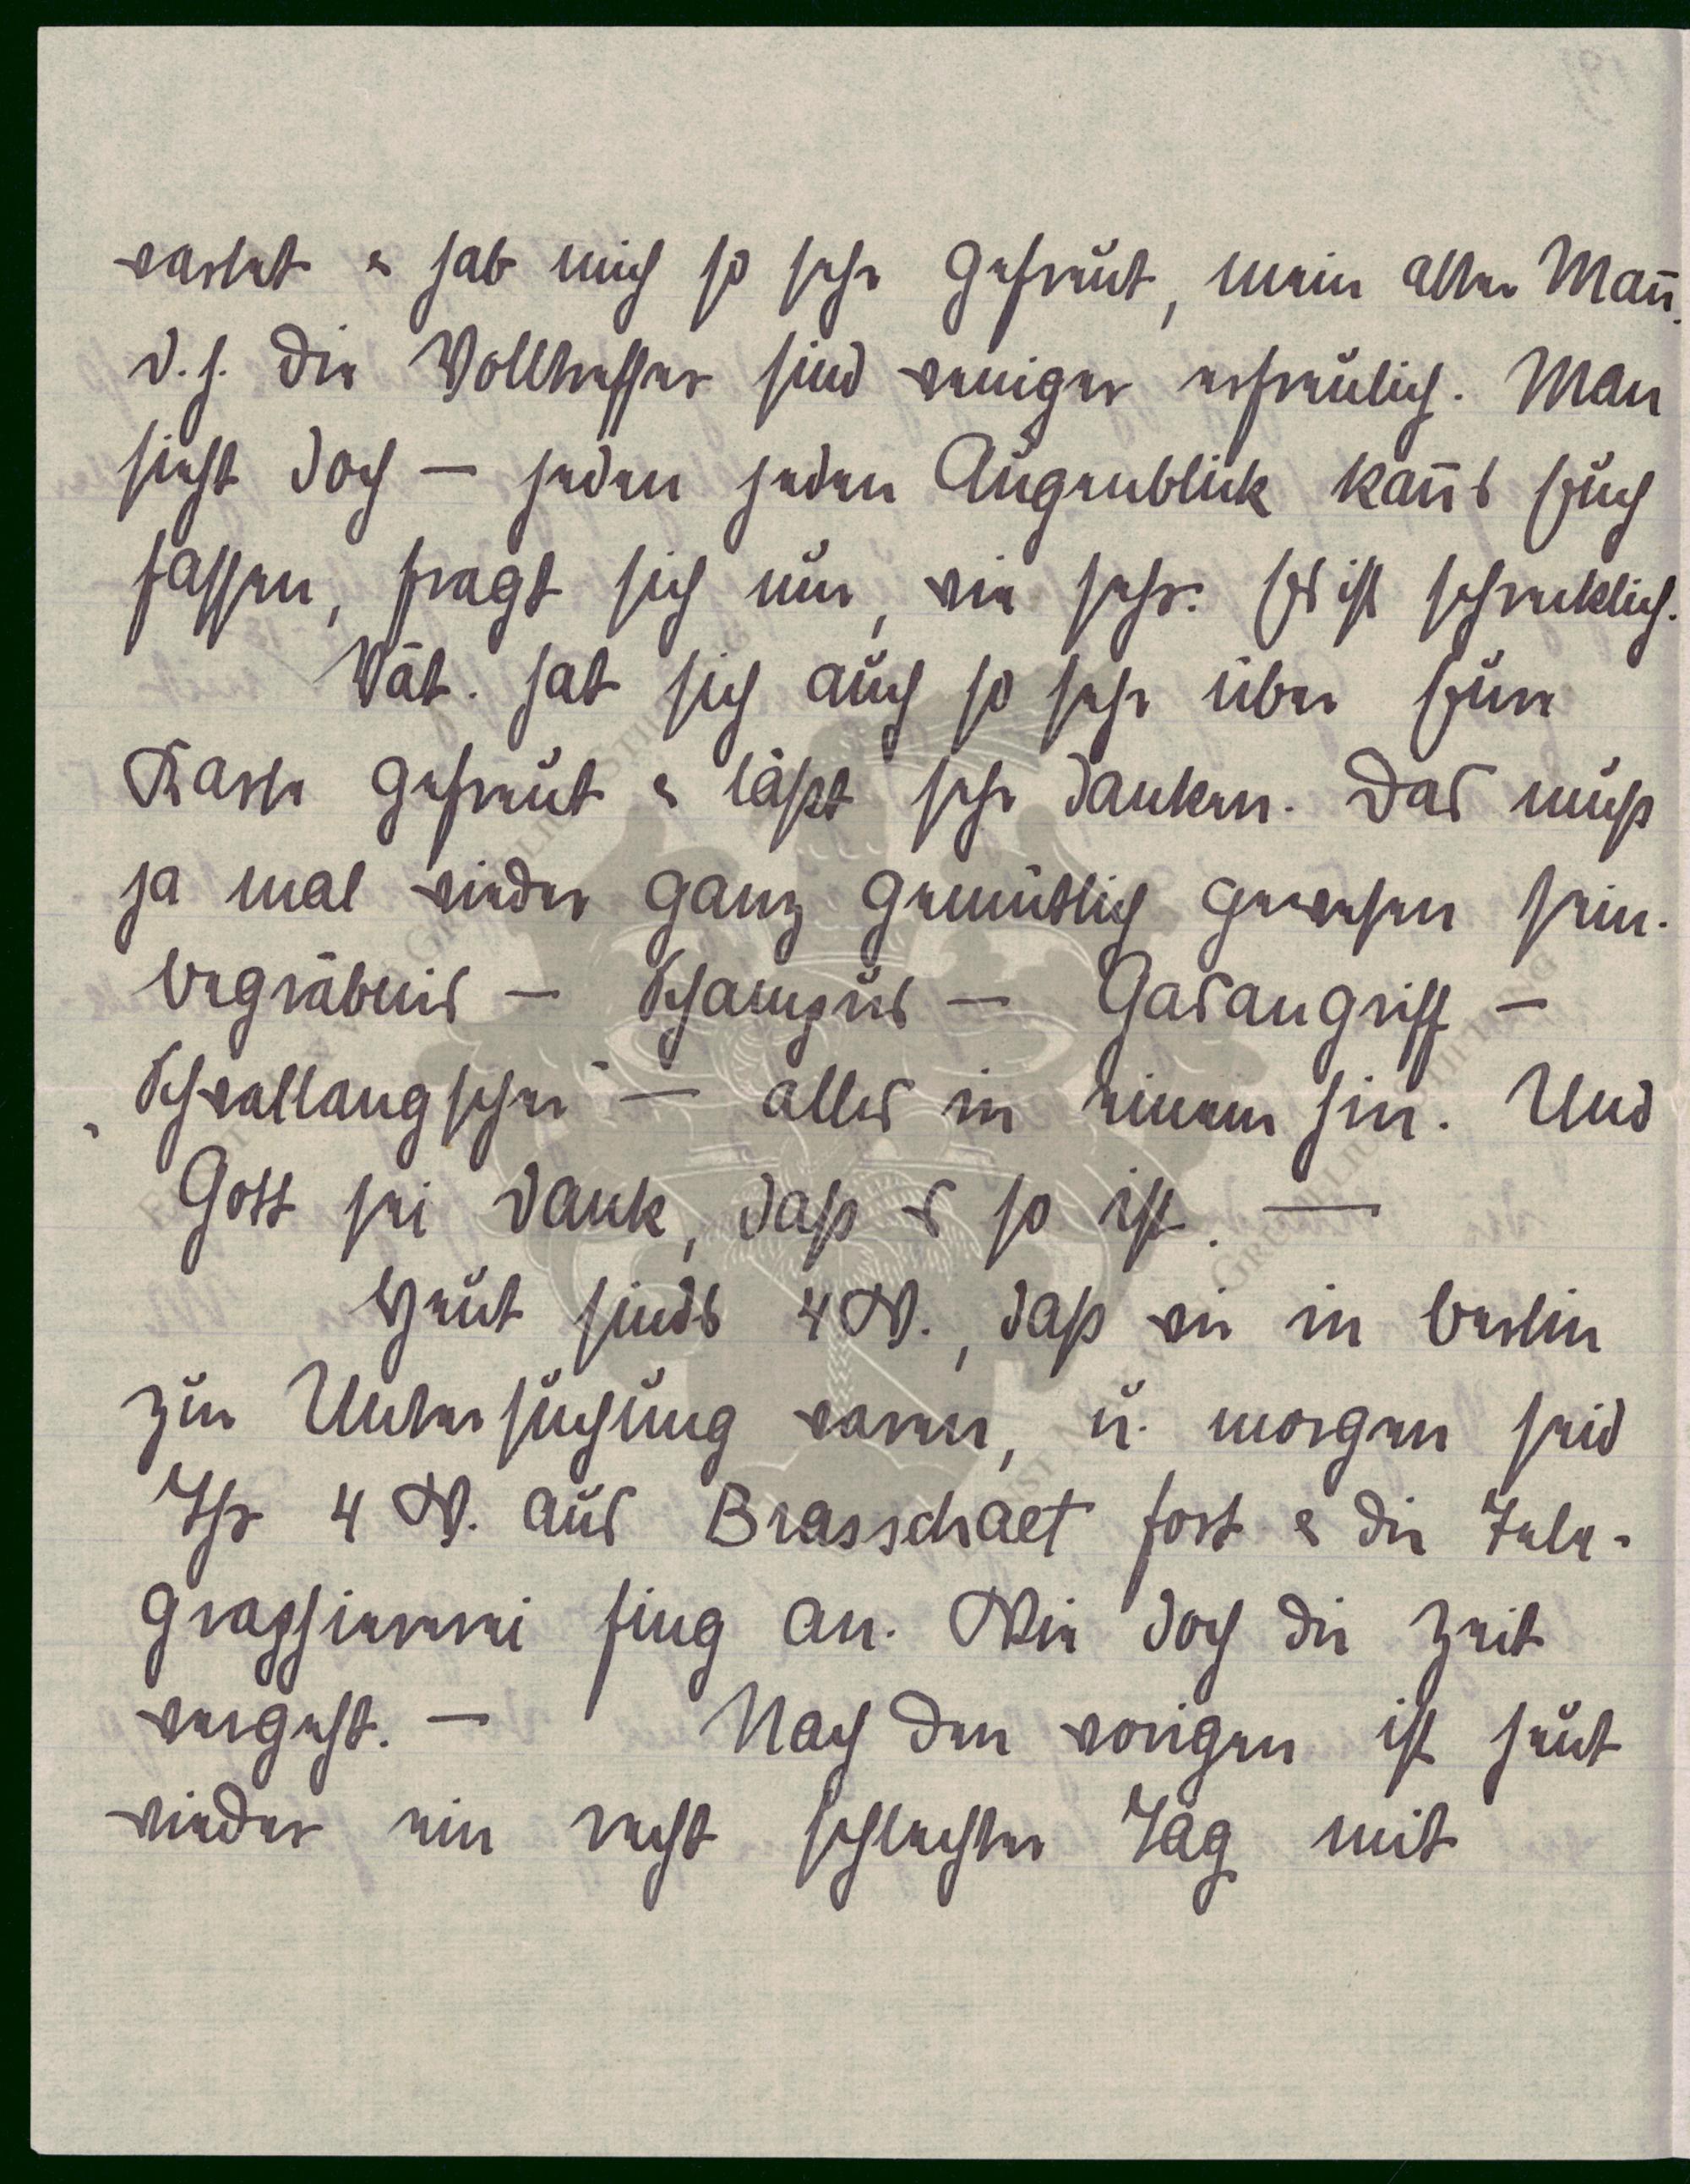 wartet & hab mich so sehr gefreut, mein alter Mañ.
d.h. die Volltreffer sind weniger erfreulich. Man
sieht doch — jeden jeden Augenblick kañs Euch
fassen, fragt sich nur, wie sehr. Es ist schrecklich.
Vät. hat sich auch so sehr über Eure
Karte gefreut & läßt sehr danken. Das muß
ja mal wieder ganz gemütlich gewesen sein.
Begräbnis — Schampus — Gasangriff —
Schwallangscher — alles in einem hin. Und
Gott sei Dank, daß es so ist. —
Heut sinds 4 W., daß wir in Berlin
zur Untersuchung waren, u. morgen seid
Ihr 4 W. aus Brasschaet fort & die Tele-
graphiererei fing an. Wie doch die Zeit
vergeht. — Nach den vorigen ist heut
wieder ein recht schlechter Tag mit